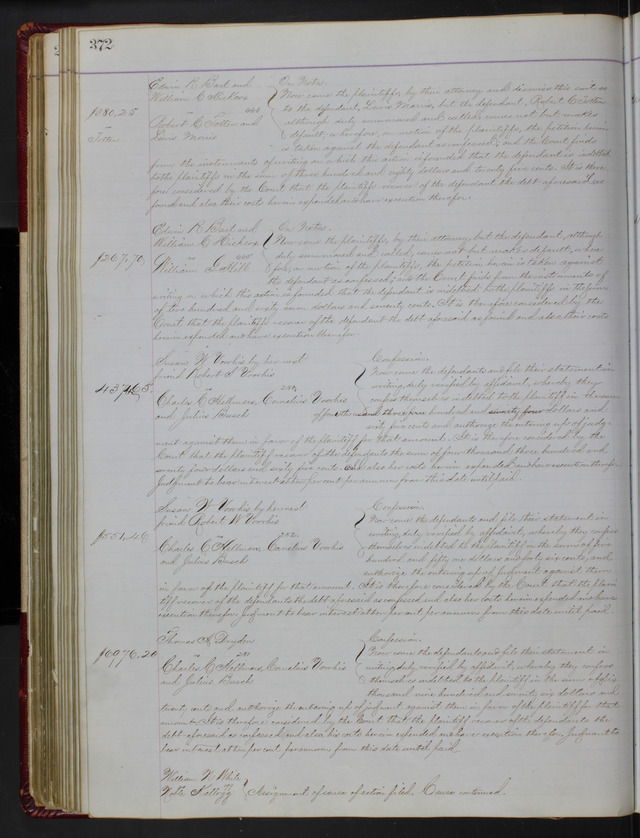 372
Edwin R. Bard and
William C. Hickox
vs
Robert C. Totter and
Louis Morris
$380,25
vs
Totter
On Notes.
Now come the plaintiffs, by their attorney and dismiss this suit as
to the defendant, Louis Morris, but the defendant, Robert C. Totter
although duly summoned and called, comes not but makes
default; wherefore, on motion of the plaintiffs, the petition herein
is taken against the defendant as confessed; and the Court finds
from the instruments of writing on which this action is founded that the defendant is indebted
to the plaintiffs in the sum of three hundred and eighty dollars and twenty five cents. It is there
fore considered by the Court that the plaintiffs recover of the defendant the debt aforesaid as
found and also their costs herein expended and have execution therefor.
Edwin R. Bard and
William C. Hickox
vs
William Hill
$267,70,
On Notes.
Now come the plaintiffs, by their attorney, but the defendant, although
duly summoned and called, comes not but makes default; where
fore, on motion of the plaintiffs, the petition herein is taken against
the defendant as confessed; and the Court finds from the instruments of
writing on which this action is founded that the defendant is indebted to the plaintiffs in the sum
of two hundred and sixty seven dollars and seventy cents. It is therefore considered by the
Court that the plaintiffs recover of the defendant the debt aforesaid as found and also their costs
herein expended and have execution therefor.
Susan W Voorhis by her next
friend Robert W Voorhis
vs
Charles C. Hellmers, Cornelius Voorhis
and Julius Busch
Confession.
Now come the defendants and file their statement in
writing, duly verified by affidavit, whereby they
confess themselves indebted to the plaintiff in the sum
of four thousand three hundred and seventy four dollars and
sixty five cents and authorize the entering up of judg-
ment against them in favor of the plaintiff for that amount. It is therefore considered by the
Court that the plaintiff recover of the defendants the sum of four thousand three hundred and
seventy four dollars and sixty five cents and also her costs herein expended and have execution therefor
Judgment to bear interest at ten per cent per annum from this date until paid.
Susan W Voorhis by her next
friend Robert W Voorhis
$551,46
vs
Charles C. Hellmers, Cornelius Voorhis
and Julius Busch
Confession.
Now come the defendants and file their statement in
writing, duly verified by affidavit, whereby they confess
themselves indebted to the plaintiff in the sum of five
hundred and fifty one dollars and forty six cents, and
authorize the entering up of judgment against them
in favor of the plaintiff for that amount. It is therefore considered by the Court that the plain
tiff recover of the defendants the debt aforesaid as confessed and also her costs herein expended and have
execution therefor. Judgment to bear interest at ten per cent per annum from this date until paid
Thomas A. Dryden
$6976.20
vs
Charles C. Hellmers, Cornelius Voorhis
and Julius Busch
Confession.
Now come the defendants and file their statement in
writing, duly verified by affidavit, whereby they confess
themselves indebted to the plaintiff in the sum of six
thousand nine hundred and seventy six dollars and
twenty cents and authorize the entering up of judgment against them in favor of the plaintiff for that
amount. It is therefore considered by the Court that the plaintiff recover of the defendants the
debt aforesaid as confessed and also his costs herein expended and have execution therefor. Judgment to
bear interest at ten per cent per annum from this date until paid.
William N. White
Kellogg
Assignment of cause of action filed. Cause continued.